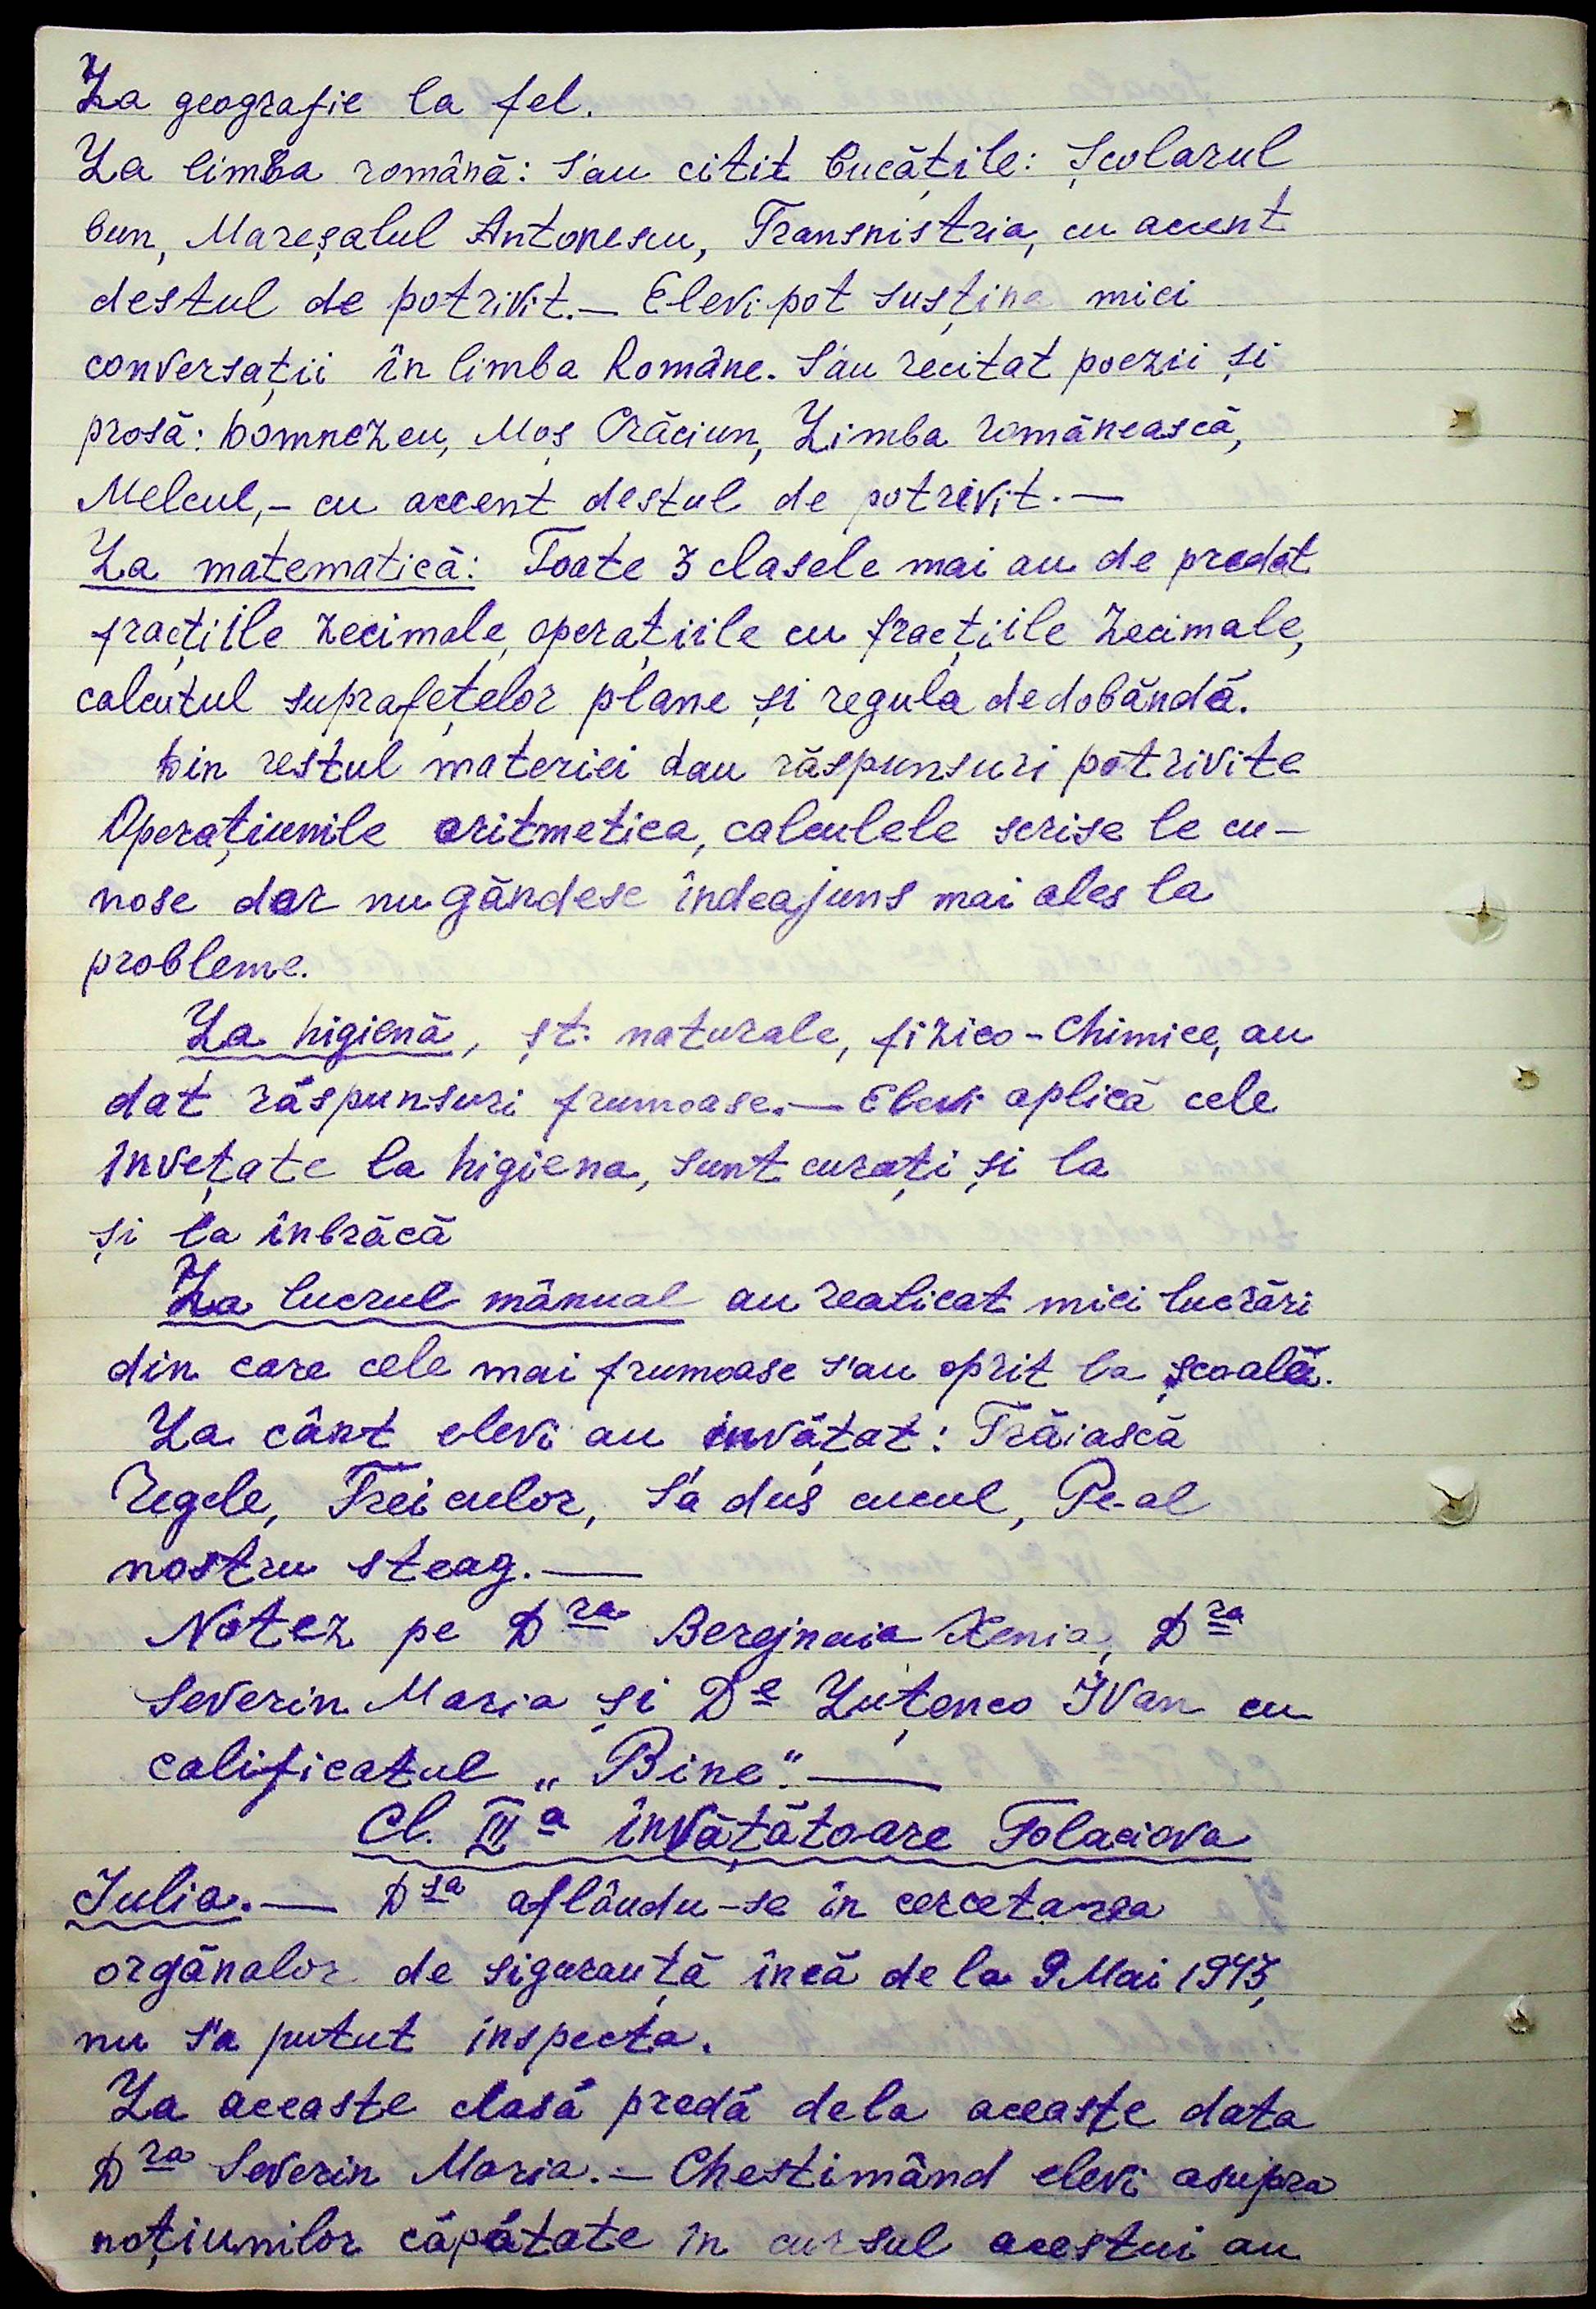 La geografie la fel.
La limba română: s'au citit bucățile: Școlarul
bun, Mareșalul Antonescu, Transnistria, cu accent
destul de potrivit.— Elevi pot susține mici
conversații în limba Române. S'au recitat poezii și
prosă: Domnezeu, Moș Crăciun, Limba românească,
Melcul,- cu accent destul de potrivit.—
La matematică: Toate 3 clasele mai au de predat
fracțiile zecimale, operațiile cu fracțiile zecimale,
calculul suprafețelor plane și regula de dobândă.
Din restul materiei dau răspunsuri potrivite
Operațiunile aritmetica, calculele scrise le cu-
nosc dar nu gândesc îndeajuns mai ales la
probleme.
La higienă, șt. naturale, fizico-chimice, au
dat răspunsuri frumoase.— Elevi aplică cele
învețate la higiena, sunt curați și la
și la înbrăcă
La lucrul mânual au realicat mici lucrări
din care cele mai frumoase s'au oprit la școală.
La cânt elevi au învățat: Trăiască
Regele, Trei culor, S'a dus cucul, Pe-al
nostru steag.—
Notez pe Dra Berejnaia Xenia, Dra
Severin Maria și Dl Luțenco Ivan cu
calificatul „Bine".—
Cl. IIa învățătoare Tolaciova
Iulia.— Dsa aflându-se în cercetarea
orgănalor de siguranță încă de la 9 Mai 1943,
nu s'a putut inspecta.
La aceaste clasă predă dela aceaste data
Dra Severin Maria.— Chestimând elevi asupra
noțiunilor căpătate în cursul acestui an